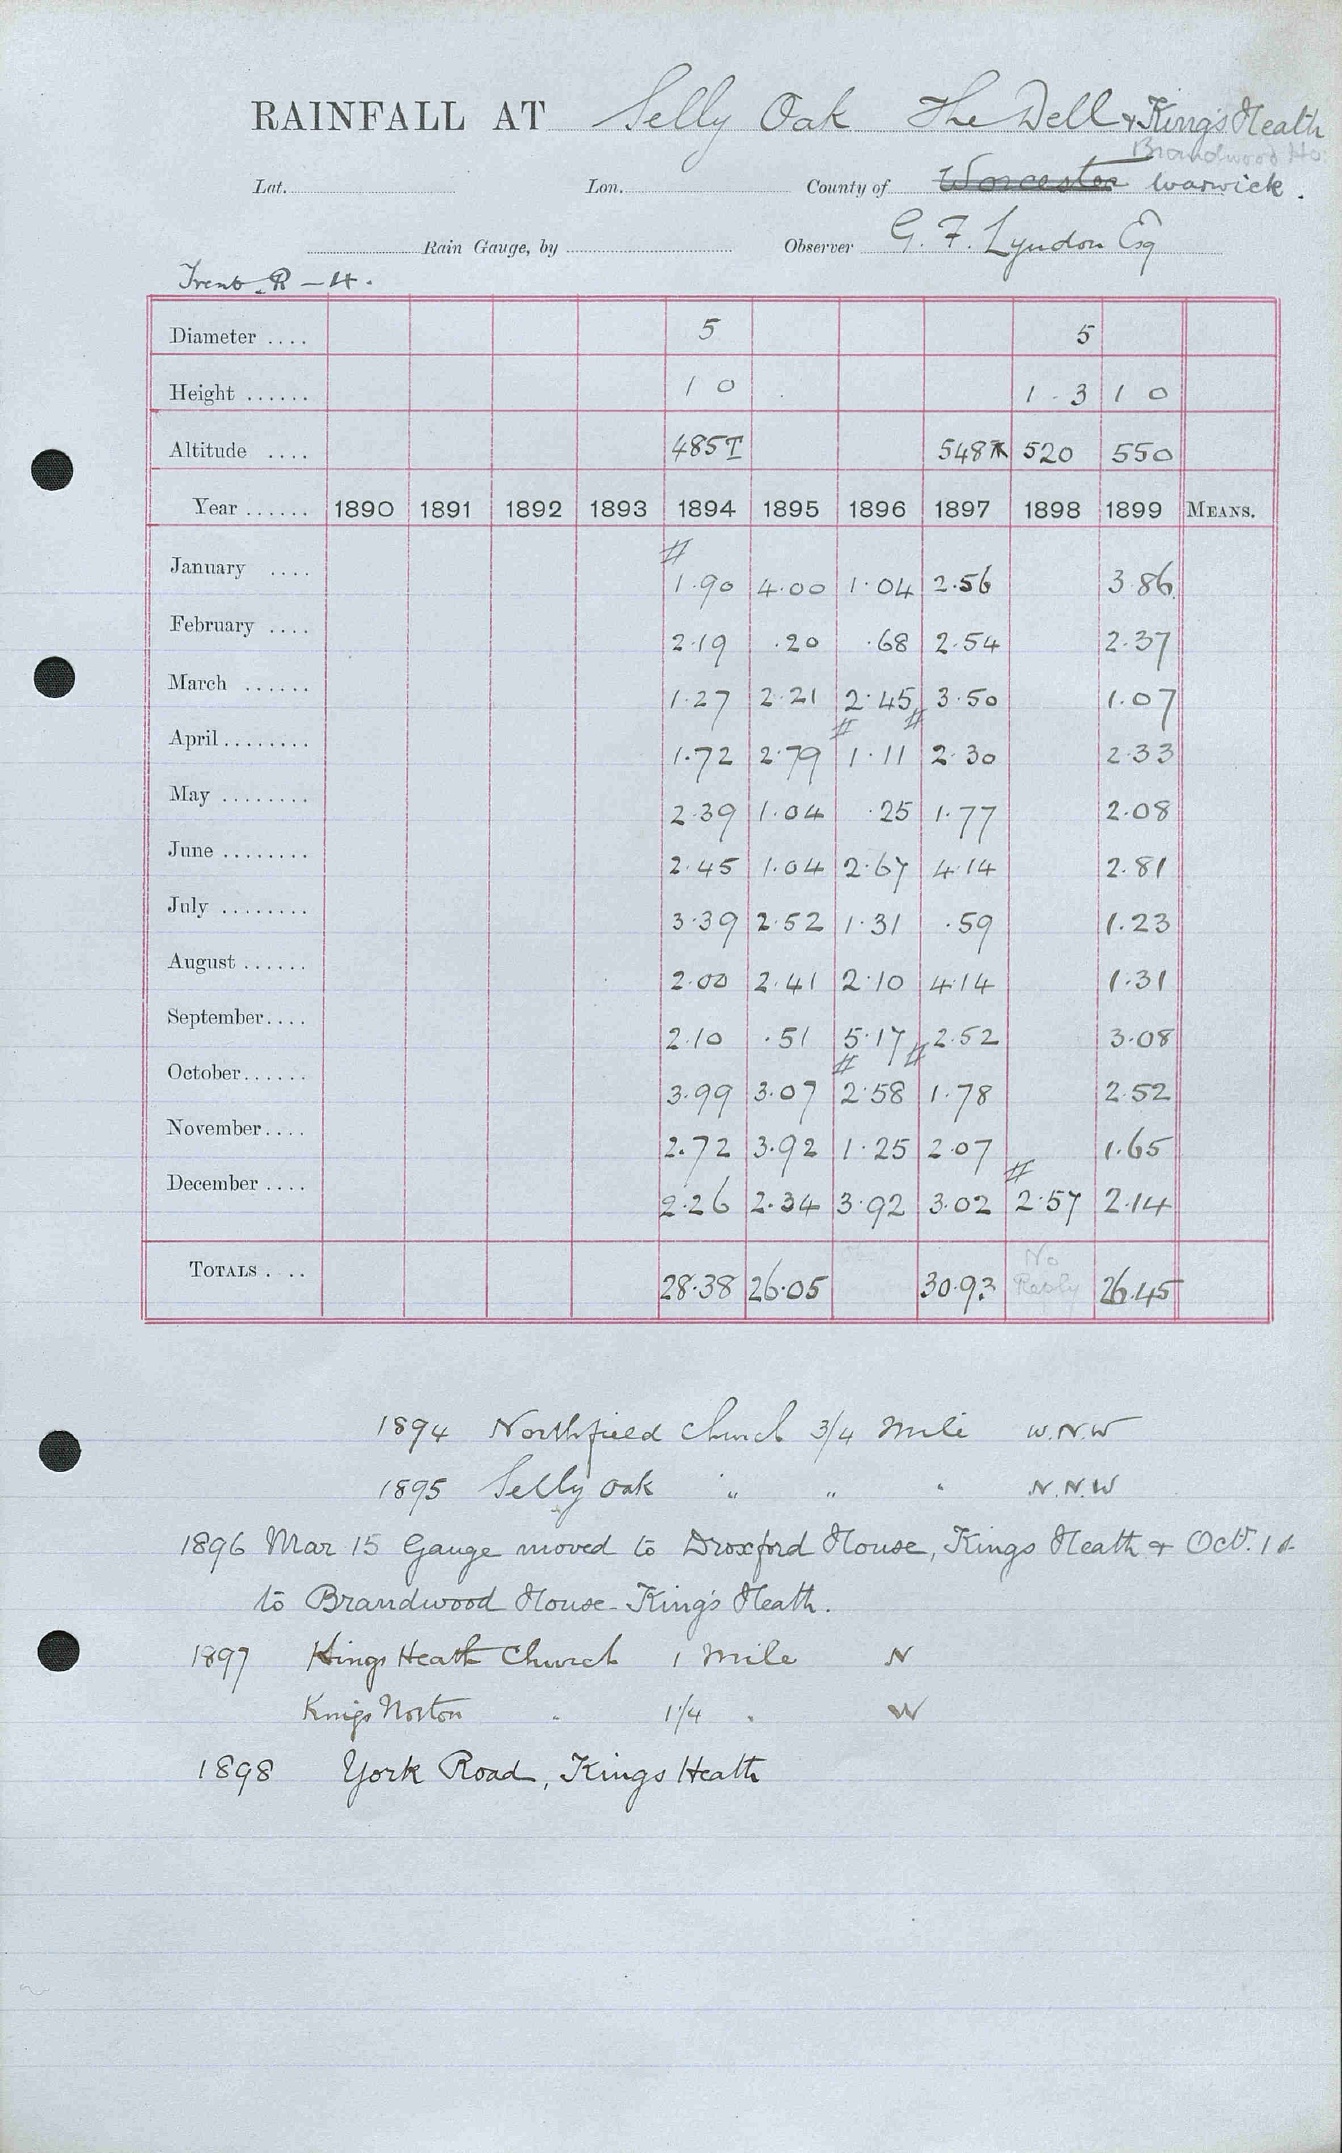 RAINFALL AT Selly Oak The Dell & King's Heath
Brandwood Ho.
Lat. Lon. County of Worcester Warwick.
Rain Gauge, by Observer G. F. Lyndon Esq
Trent R - 4.
Diameter .... 5 5
Height ...... 1 0 1 - 3 1 0
Altitude .... 485T 548 520 550
Year ...... 1890 1891 1892 1893 1894 1895 1896 1897 1898 1899 MEANS.
#
January .... 1.90 4.00 1.04 2.56 3.86
February .... 2.19 .20 .68 2.54 2.37
March ...... 1.27 2.21 2.45 3.50 1.07
# #
April ........ 1.72 2.79 1.11 2.30 2.33
May ........ 2.39 1.04 .25 1.77 2.08
June ........ 2.45 1.04 2.67 4.14 2.81
July ........ 3.39 2.52 1.31 .59 1.23
August ...... 2.00 2.41 2.10 4.14 1.31
September.... 2.10 .51 5.17 2.52 3.08
# #
October...... 3.99 3.07 2.58 1.78 2.52
November.... 2.72 3.92 1.25 2.07 1.65
#
December .... 2.26 2.34 3.92 3.02 2.57 2.14
TOTALS .... 28.38 26.05 30.93 No Reply 26.45
1894 Northfield Church 3/4 Mile W.N.W
1895 Selly Oak " " " N.N.W
1896 Mar 15 Gauge moved to Droxford House, Kings Heath & Oct. 1st
to Brandwood House - King's Heath.
1897 Kings Heath Church 1 Mile N
Kings Norton " 1 1/4 " W
1898 York Road, Kings Heath